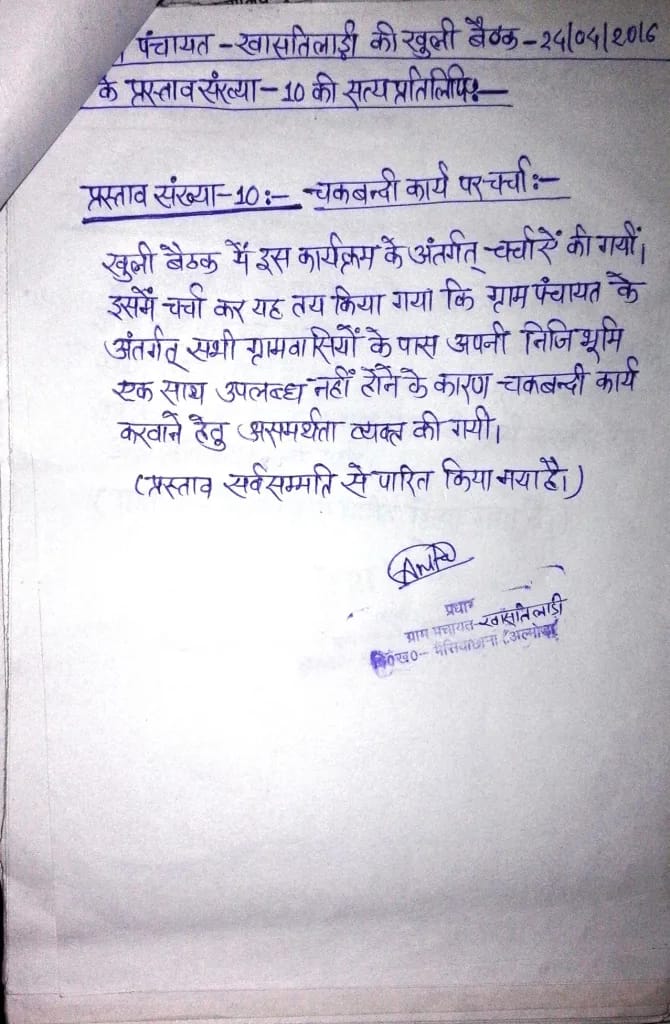 पंचायत - खासतिलाड़ी की खुली बैठक - 24/04/2016
के प्रस्ताव संख्या - 10 की सत्य प्रतिलिपि :-
प्रस्ताव संख्या - 10 :- चकबन्दी कार्य पर चर्चा :-
खुली बैठक में इस कार्यक्रम के अंतर्गत् चर्चाऐं की गयीं।
इसमें चर्चा कर यह तय किया गया कि ग्राम पंचायत के
अंतर्गत् सभी ग्रामवासियों के पास अपनी निजि भूमि
एक साथ उपलब्ध नहीं होने के कारण चकबन्दी कार्य
करवाने हेतु असमर्थता व्यक्त की गयी।
(प्रस्ताव सर्वसम्मति से पारित किया गया है।)
प्रधान
ग्राम पंचायत - खासतिलाड़ी
वि०ख० - (अल्मोड़ा)